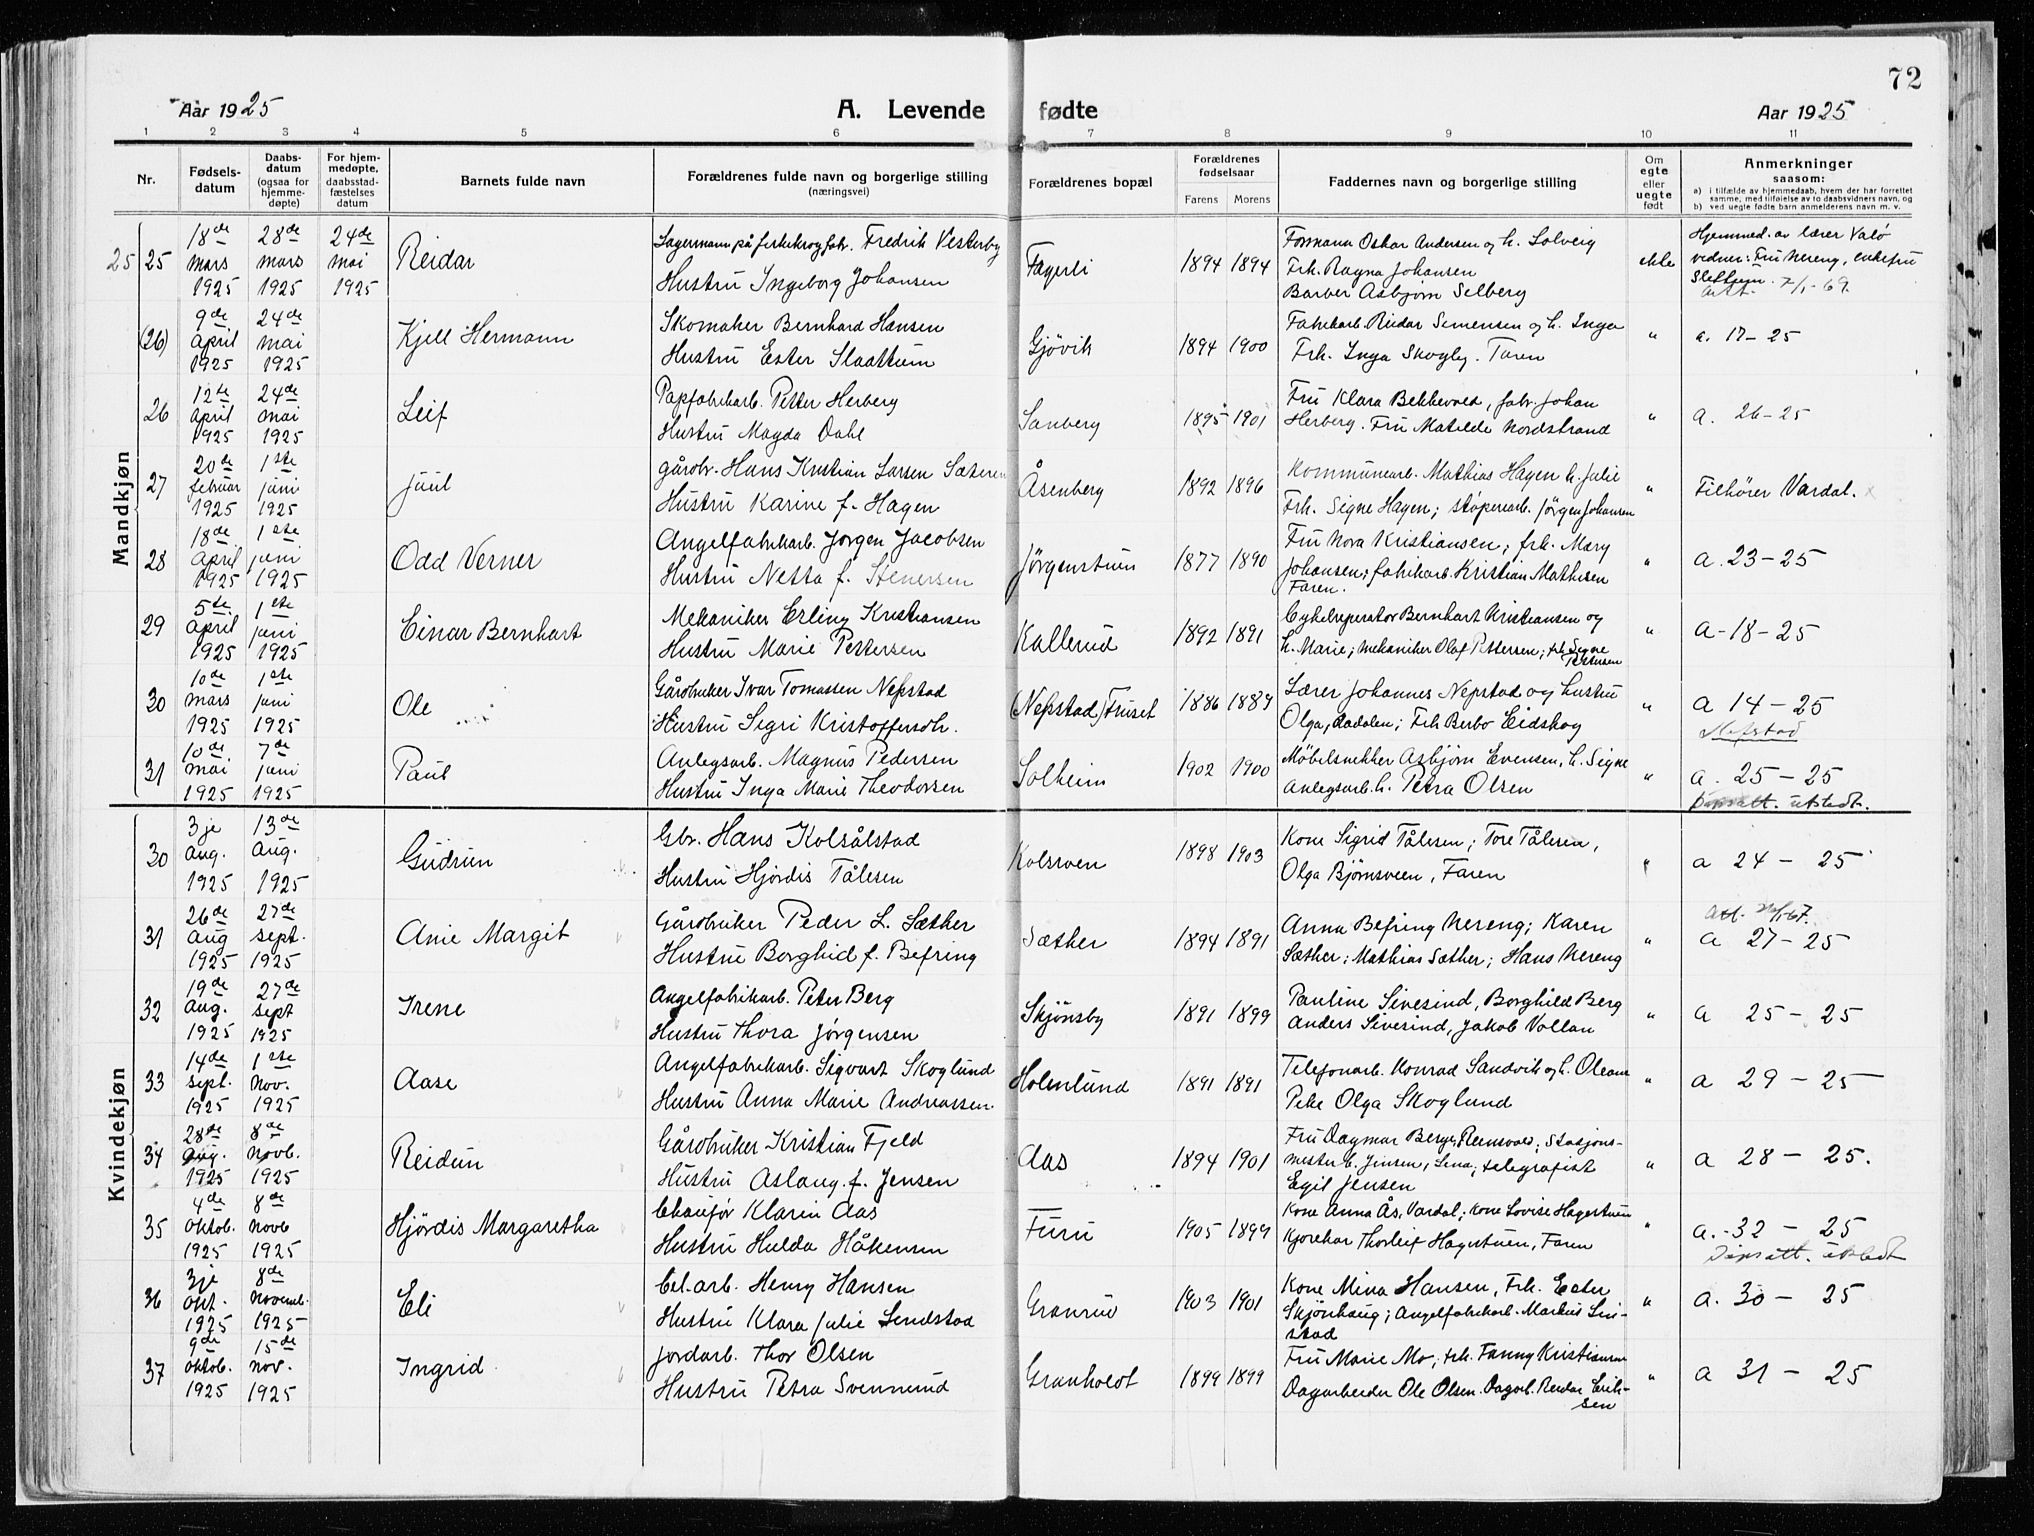 72
Aar 1925
A. Levende fødte
Aar 1925
1 2 3 4 5 6 7 8 9 10 11
Nr.
Fødsels-
datum
Daabs-
datum
(ogsaa for
hjemme-
døpte)
For hjem-
medøpte,
daabsstad-
fæstelses
datum
Barnets fulde navn
Forældrenes fulde navn og borgerlige stilling
(næringsvei)
Forældrenes bopæl
Forældrenes
fødselsaar
Farens Morens
Faddernes navn og borgerlige stilling
Om
egte
eller
uegte
født
Anmerkninger
saasom:
a) i tilfælde av hjemmedaab, hvem der har forrettet
samme, med tilføielse av to daabsvidners navn, og
b) ved uegte fødte barn anmelderens navn m. v.
Mandkjøn
25 25
18de mars 1925
28de mars 1925
24de mai 1925
Reidar
Lagermann på fiskekrogfabr. Fredrik Vesterby
Hustru Ingeborg Johansen
Fagerli
1894 1894
Formann Oskar Andersen og h. Solveig
Frk. Ragna Johansen
Barber Asbjørn Selberg
ekte
Hjemmed. av lærer Valö
vidner: Fru Nereng, enkefru
Slettum.
Att. 7/1-69
(26)
9de april 1925
24de mai 1925
Kjell Hermann
Skomaker Bernhard Hansen
Hustru Ester Slaattum
Gjövik
1894 1900
Fabrikarb. Reidar Simensen og h. Inga
Frk. Inga Skogly. Faren
"
a. 17-25
26
12te april 1925
24de mai 1925
Leif
Papfabrikarb. Petter Herberg
Hustru Magda Dahl
Sanberg
1895 1901
Fru Klara Bekkevold, fabr. Johan
Herberg. Fru Matilde Nordstrand
"
a. 26-25
27
20de februar 1925
1ste juni 1925
Juul
gårdbr. Hans Kristian Larsen Sæteren
Hustru Karine f. Hagen
Åsenberg
1892 1896
Kommunearb. Mathias Hagen h. Julie
Frk. Signe Hagen; støperearb. Jørgen Johansen
"
Tilhører Vardal. x
28
18de april 1925
1ste juni 1925
Odd Verner
Angelfabrikarb. Jørgen Jacobsen
Hustru Netta f. Stenersen
Jørgenstum
1877 1890
Fru Nora Kristiansen; frk. Mary
Johansen; fabrikarb. Kristian Mathisen
Faren.
"
a. 23-25
29
5te april 1925
1ste juni 1925
Einar Bernhart
Mekaniker Erling Kristiansen
Hustru Marie Pettersen
Kallerud
1892 1891
Cykelreperatør Bernhart Kristiansen og
h. Marie; mekaniker Olaf Pettersen; frk. Signe
Pettersen
"
a-18-25
30
10de mars 1925
1ste juni 1925
Ole
Gårdbruker Ivar Tomassen Nepstad
Hustru Sigri Kristoffersdtr.
(Nepstad) Fruset
1886 1889
Lærer Johannes Nepstad og hustru
Olga, Dadalen; Frk Berbo Eidskog
"
a 14-25
Nefstad
31
10de mai 1925
7de juni 1925
Paul
Anlegsarb. Magnus Pedersen
Hustru Inga Marie Theodorsen
Solheim
1902 1900
Møbelsnekker Asbjørn Evensen, h. Signe
anlegsarb. h. Petra Olsen
"
a. 25-25
Dåpsatt. utstedt.
Kvindekjøn
30
3je aug. 1925
13de aug. 1925
Gudrun
Gbr. Hans Kolsålstad
Hustru Hjördis Tålesen
Kolsveen
1898 1903
Kone Sigrid Tålesen; Tore Tålesen,
Olga Bjørnsveen, Faren
"
a 24-25
31
26de aug 1925
27de sept. 1925
Anie Margit
Gårdbruker Peder L. Sæther
Hustru Borghild f. Befring
Sæther
1894 1891
Anna Befring Nereng; Karen
Sæther; Mathias Sæther; Hans Nereng
"
a 27-25
32
19de aug. 1925
27de sept 1925
Irene
Angelfabrikarb. Peter Berg
Hustru Thora Jørgensen
Skjønsby
1891 1899
Pauline Sivesind, Borghild Berg
Anders Sivesind, Jakob Vollan
"
a 25-25
33
14de sept. 1925
1ste Nov. 1925
Aase
Angelfabrikarb. Sigvart Skoglund
Hustru Anna Marie Andreassen.
Holmlund
1891 1891
Telefonarb. Konrad Sandvik og h. Oleane
Pike Olga Skoglund
"
a 29-25
34
28de aug. 1925
8de Novb. 1925
Reidun
Gårdbruker Kristian Fjeld
Hustru Aslaug f. Jensen
Aas
1894 1901
Fru Dagmar Berge, Reinsvold; Stasjons-
mester h. Jensen, Lena; telegrafist
Egil Jensen
"
a 28-25.
35
4de oktob. 1925
8de Novb 1925
Hjördis Margaretha
Chauför Klarin Aas
Hustru Hulda Håkensen
Furu
1905 1899
Kone Anna Ås, Vardal; kone Lovise Hagertuen
Kjørekar Thorleif Hagestuen, Faren
"
a.-32-25
Dåpsatt. utstedt
36
3je okt. 1925
8de Novemb. 1925
Eli
Cel.arb. Henry Hansen
Hustru Klara Julie Sendstad
Granrud
1903 1901
Kone Mina Hansen, Frk. Ester
Skjønhaug; Angelfabrikarb. Markus Lin-
stad
"
a. 30-25
37
9de oktob. 1925
15de nov. 1925
Ingrid
Jordarb. Thor Olsen
Hustru Petra Svennerud
Granholdt
1899 1899
Fru Marie Mo; frk. Fanny Kristiansen
Dagarbeider Ole Olsen. Dagarb. Reidar Erik-
sen
"
a 31-25